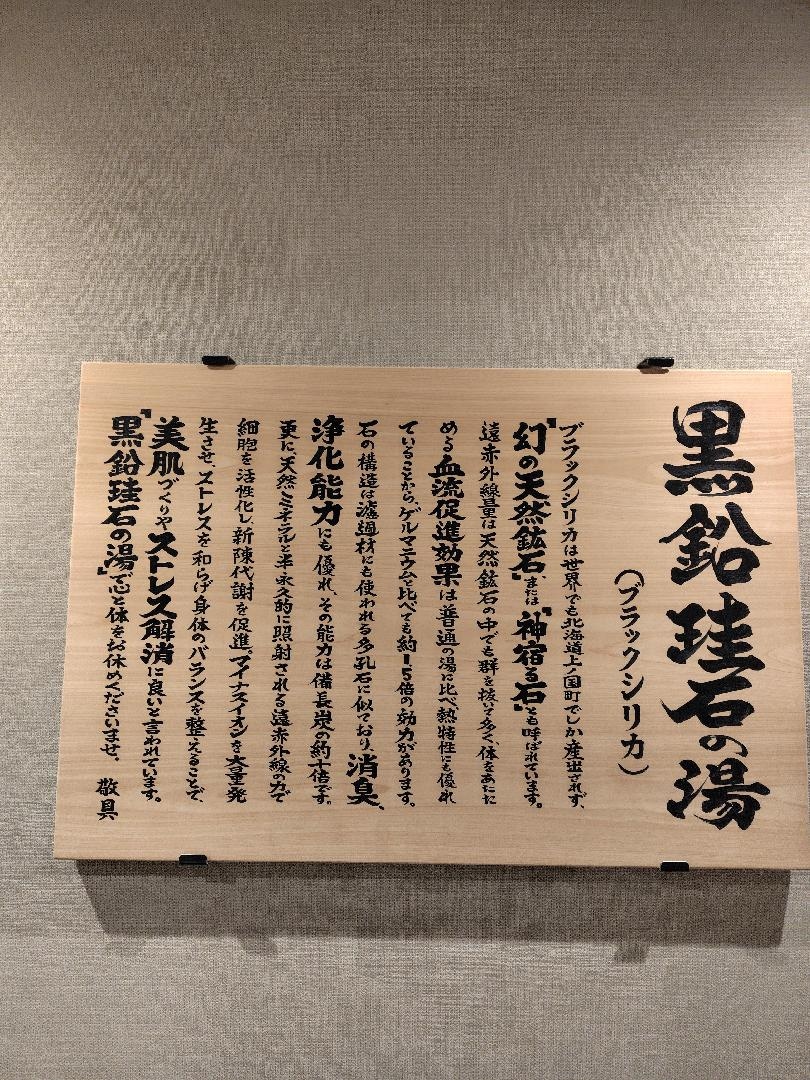 黒鉛珪石の湯
(ブラックシリカ)
ブラックシリカは世界でも北海道上ノ国町でしか産出されず、
『幻の天然鉱石』または『神宿る石』とも呼ばれています。
遠赤外線量は天然鉱石の中でも群を抜いて多く、体をあたた
める血流促進効果は普通の湯に比べ熱特性にも優れ
ていることから、ゲルマニウムと比べても約15倍の効力があります。
石の構造は濾過材にも使われる多孔石に似ており、消臭、
浄化能力にも優れ、その能力は備長炭の約十倍です。
更に、天然ミネラルと半永久的に照射される遠赤外線の力で
細胞を活性化し、新陳代謝を促進。マイナスイオンを大量発
生させ、ストレスを和らげ身体のバランスを整えることで、
美肌づくりやストレス解消に良いと言われています。
『黒鉛珪石の湯』で心と体をお休めくださいませ。 敬具